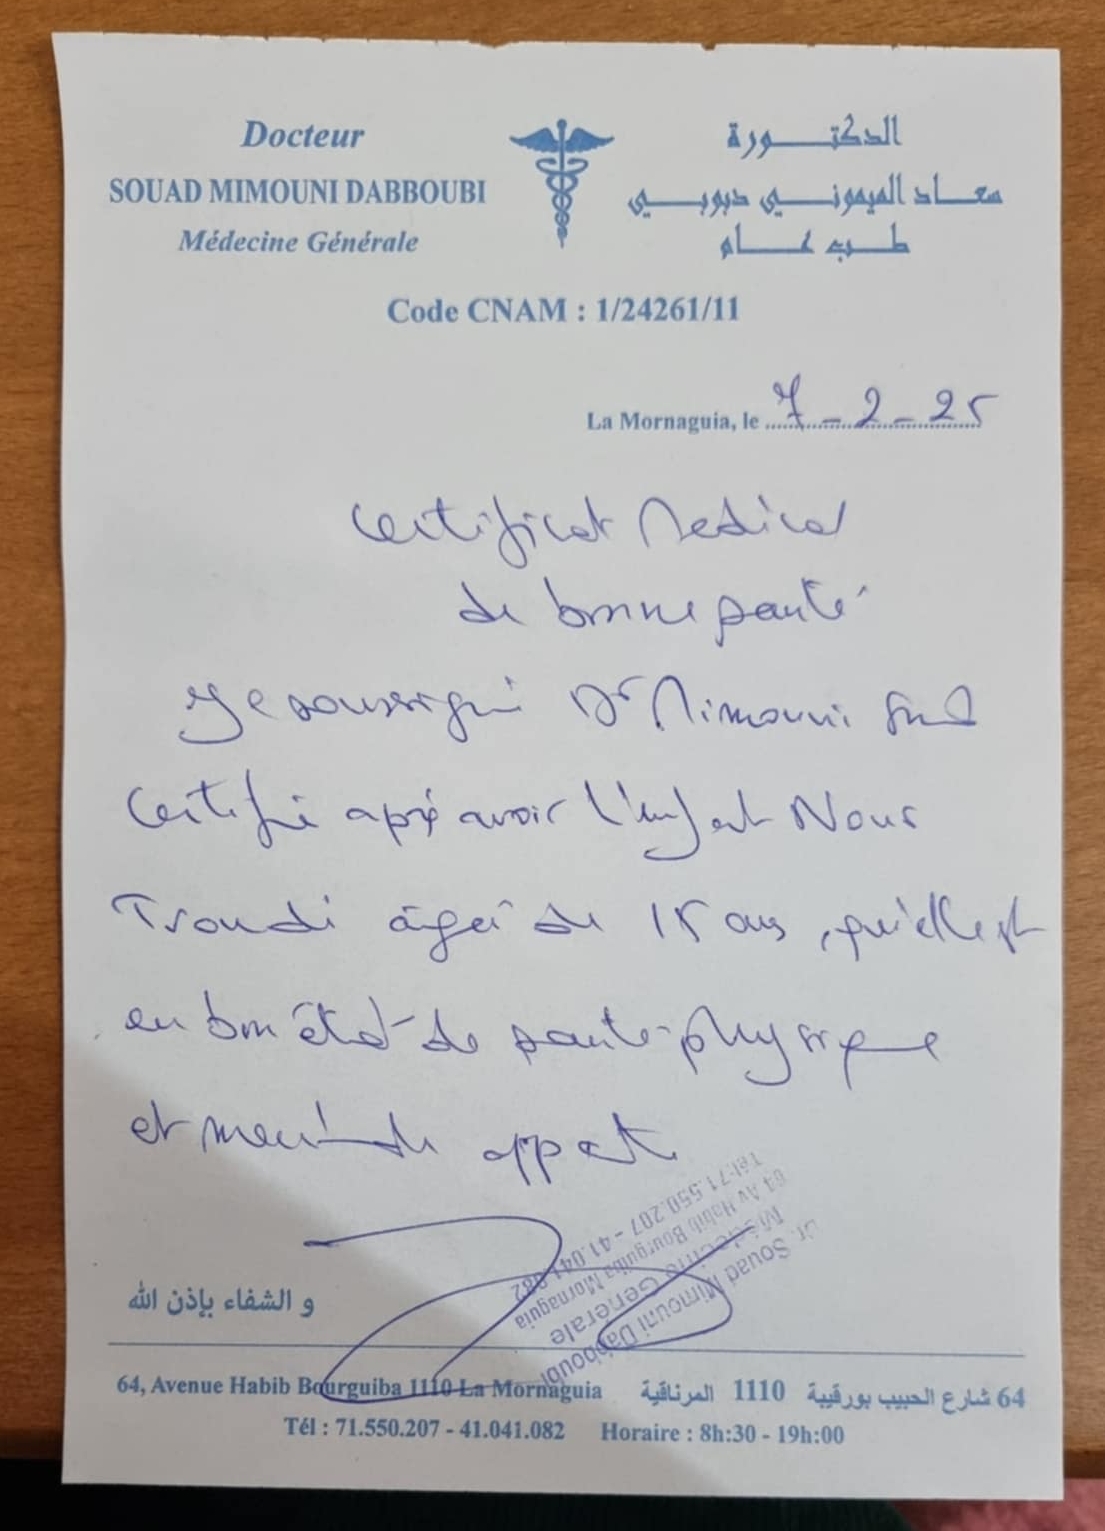 Docteur
SOUAD MIMOUNI DABBOUBI
Médecine Générale
الدكتورة
سعاد الميموني دبوبي
طب عام
Code CNAM : 1/24261/11
La Mornaguia, le 7-2-25
Certificat Medical
de bonne santé
Je soussigné Dr Mimouni Souad
Certifie après avoir l'enfant Nour
Troudi âgée de 15 ans, qu'elle est
en bon état de santé physique
et mentale apparente
Dr. Souad Mimouni Dabboubi
Médecine Générale
64 Av Habib Bourguiba Mornaguia
Tél:71.550.207 - 41.041.082
و الشفاء بإذن الله
64, Avenue Habib Bourguiba 1110 La Mornaguia
64 شارع الحبيب بورقيبة 1110 المرناقية
Tél : 71.550.207 - 41.041.082 Horaire : 8h:30 - 19h:00